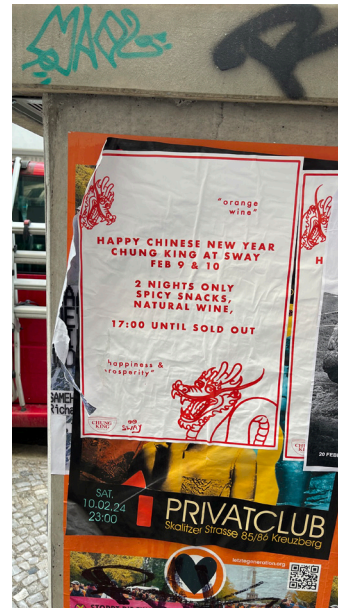 "orange
wine"
HAPPY CHINESE NEW YEAR
CHUNG KING AT SWAY
FEB 9 & 10
2 NIGHTS ONLY
SPICY SNACKS,
NATURAL WINE,
17:00 UNTIL SOLD OUT
happiness &
rosperity"
CHUNG
KING
SWAY
H
CHUNG
KING
20 FEB
SAMEH
Riche
SAT.
10.02.24
23:00
PRIVATCLUB
Skalitzer Strasse 85/86 Kreuzberg
letztegeneration.org